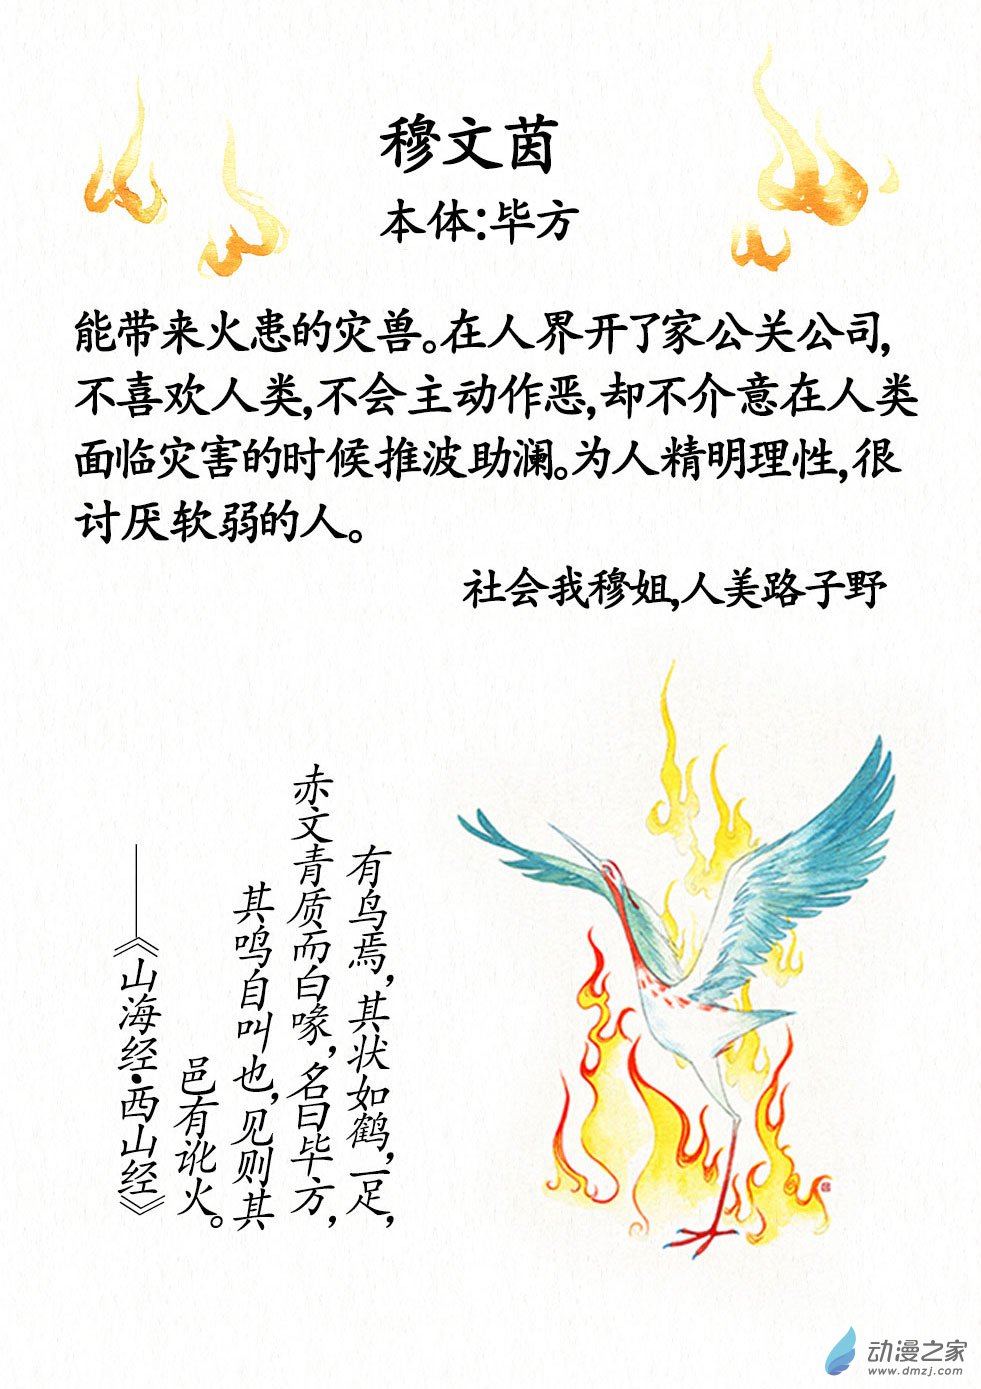 穆文茵
本体:毕方
能带来火患的灾兽。在人界开了家公关公司,
不喜欢人类,不会主动作恶,却不介意在人类
面临灾害的时候推波助澜。为人精明理性,很
讨厌软弱的人。
社会我穆姐,人美路子野
有鸟焉,其状如鹤,一足,
赤文青质而白喙,名曰毕方,
其鸣自叫也,见则其
邑有讹火。
——《山海经·西山经》
动漫之家
www.dmzj.com